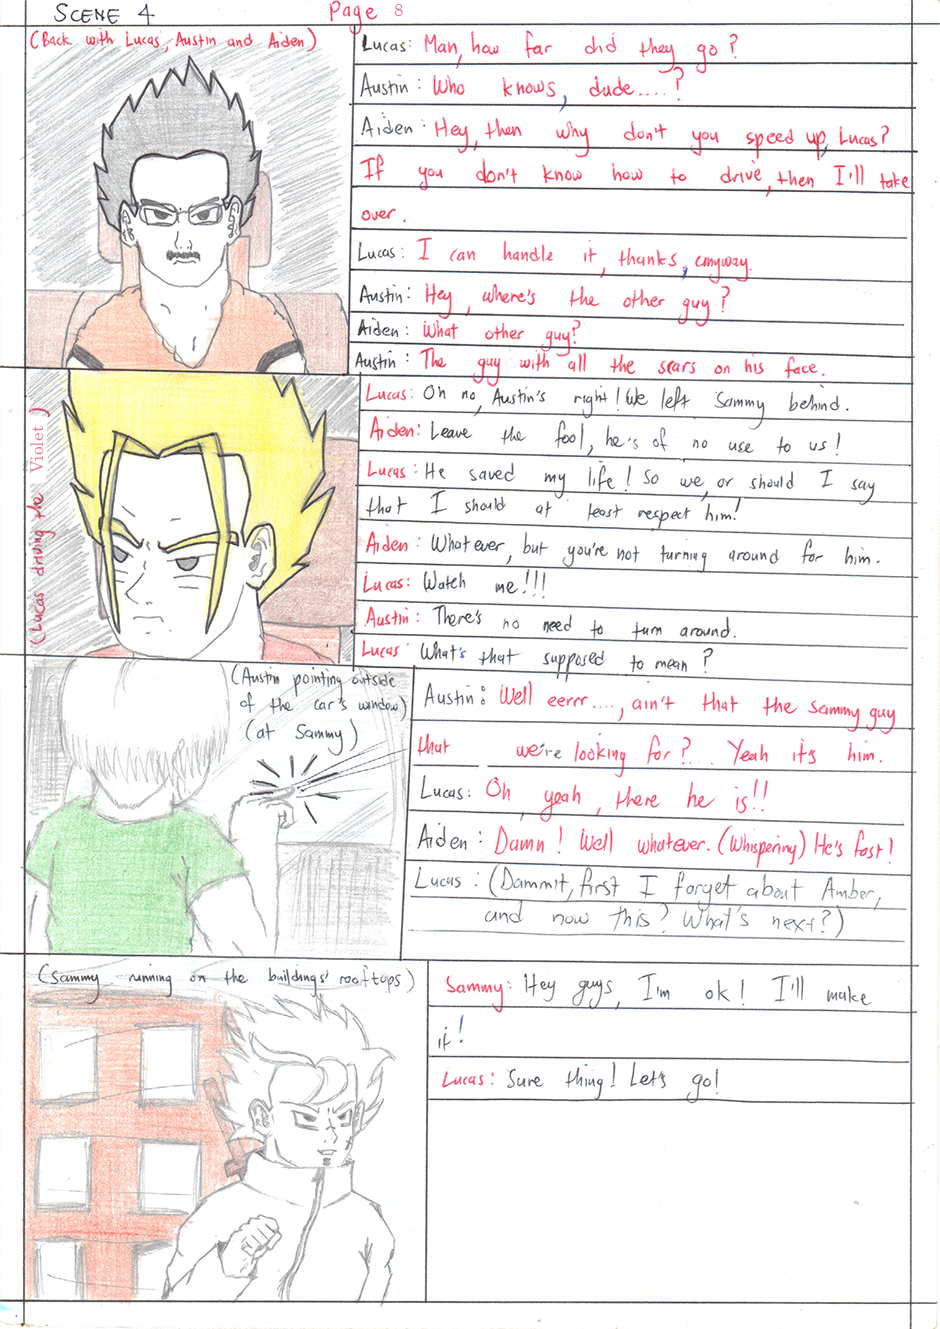 SCENE 4
Page 8
(Back with Lucas, Austin and Aiden)
Lucas: Man, how far did they go?
Austin: Who knows, dude....?
Aiden: Hey, then why don't you speed up, Lucas?
If you don't know how to drive, then I'll take
over.
Lucas: I can handle it, thanks, anyway.
Austin: Hey, where's the other guy?
Aiden: What other guy?
Austin: The guy with all the scars on his face.
(Lucas driving the Violet)
Lucas: Oh no, Austin's right! We left Sammy behind.
Aiden: Leave the fool, he's of no use to us!
Lucas: He saved my life! So we, or should I say
that I should at least respect him!
Aiden: Whatever, but you're not turning around for him.
Lucas: Watch me!!!
Austin: There's no need to turn around.
Lucas: What's that supposed to mean?
(Austin pointing outside
of the car's window)
(at Sammy)
Austin: Well eerrr...., ain't that the Sammy guy
that we're looking for?... Yeah it's him.
Lucas: Oh, yeah, there he is!!
Aiden: Damn! Well whatever. (Whispering) He's fast!
Lucas: (Dammit, first I forget about Amber,
and now this? What's next?)
(Sammy running on the buildings' rooftops)
Sammy: Hey guys, I'm ok! I'll make
it!
Lucas: Sure thing! Let's go!